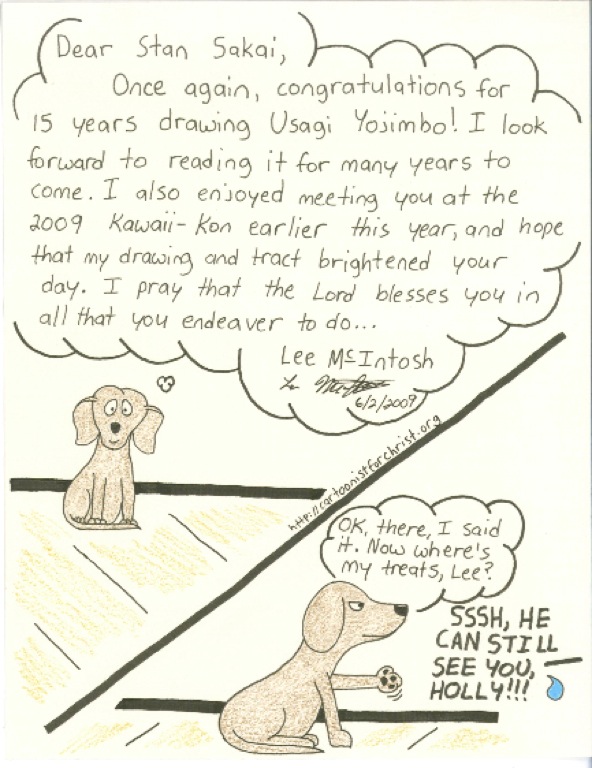 Dear Stan Sakai,
Once again, congratulations for
15 years drawing Usagi Yojimbo! I look
forward to reading it for many years to
come. I also enjoyed meeting you at the
2009 Kawaii-Kon earlier this year, and hope
that my drawing and tract brightened your
day. I pray that the Lord blesses you in
all that you endeaver to do...
Lee McIntosh
6/2/2009
http://cartoonistforchrist.org
OK, there, I said
it. Now where's
my treats, Lee?
SSSH, HE
CAN STILL
SEE YOU,
HOLLY!!!